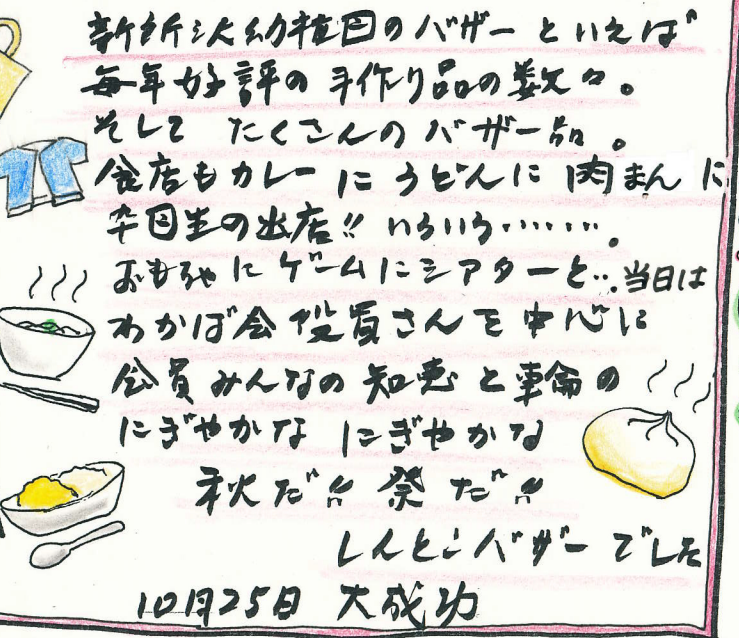 新所沢幼稚園のバザーといえば
毎年好評の手作り品の数々。
そして たくさんのバザー品。
食店もカレーにうどんに肉まんに
卒園生の出店!! いろいろ・・・・・・。
おもちゃにゲームにシアターと・・・当日は
わかば会役員さんを中心に
会員みんなの知恵と輪の
にぎやかな にぎやかな
秋だ!! 祭だ!!
しんとこバザーでした
10月25日 大成功